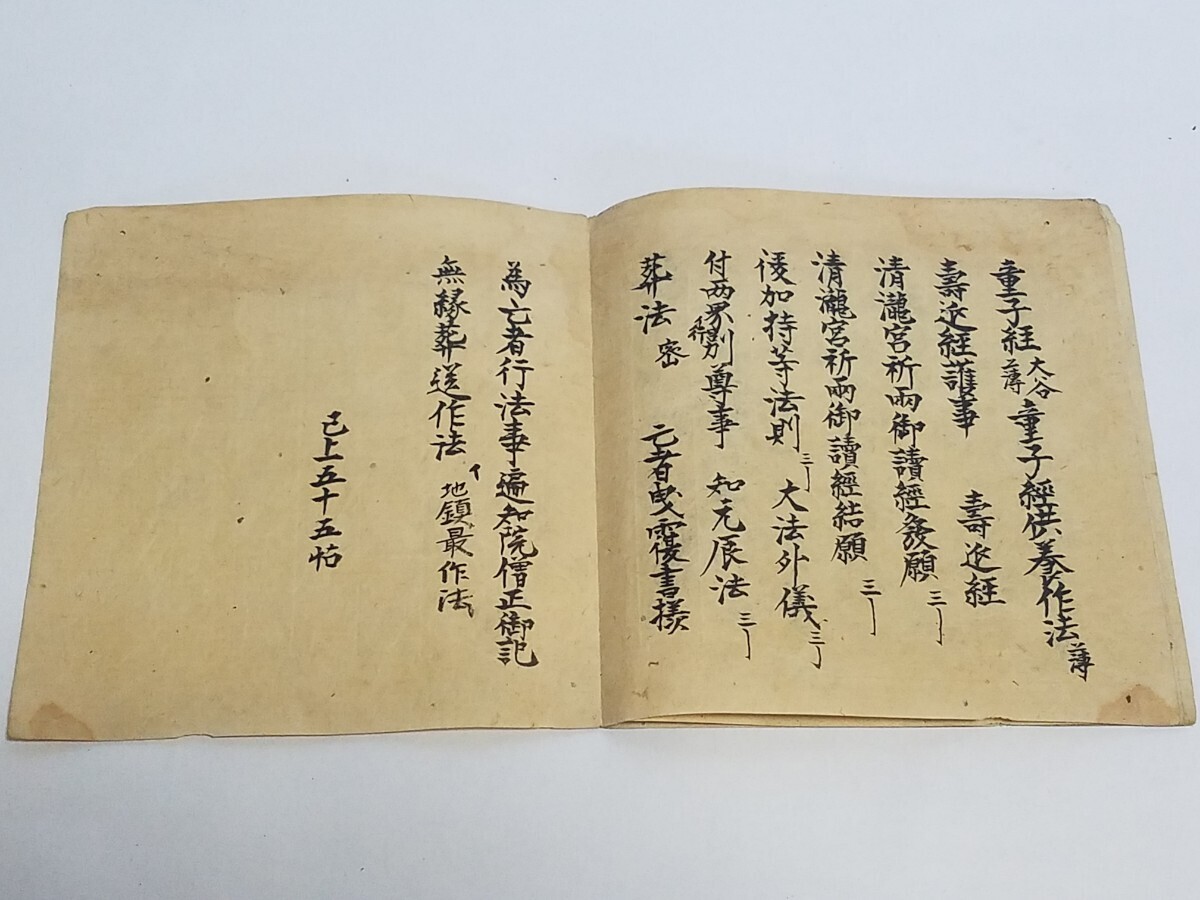 童子経 大谷 薄 童子経供養作法 薄
壽延経護事 壽延経
清瀧宮祈雨御讀經發願 三
清瀧宮祈雨御讀經結願 三
後加持等法則 三 大法外儀 三
付両界別尊事 知元辰法 三
葬法 密 亡者曳覆書様
為亡者行法事遍知院僧正御記
無縁葬送作法 地鎮最作法
已上五十五帖